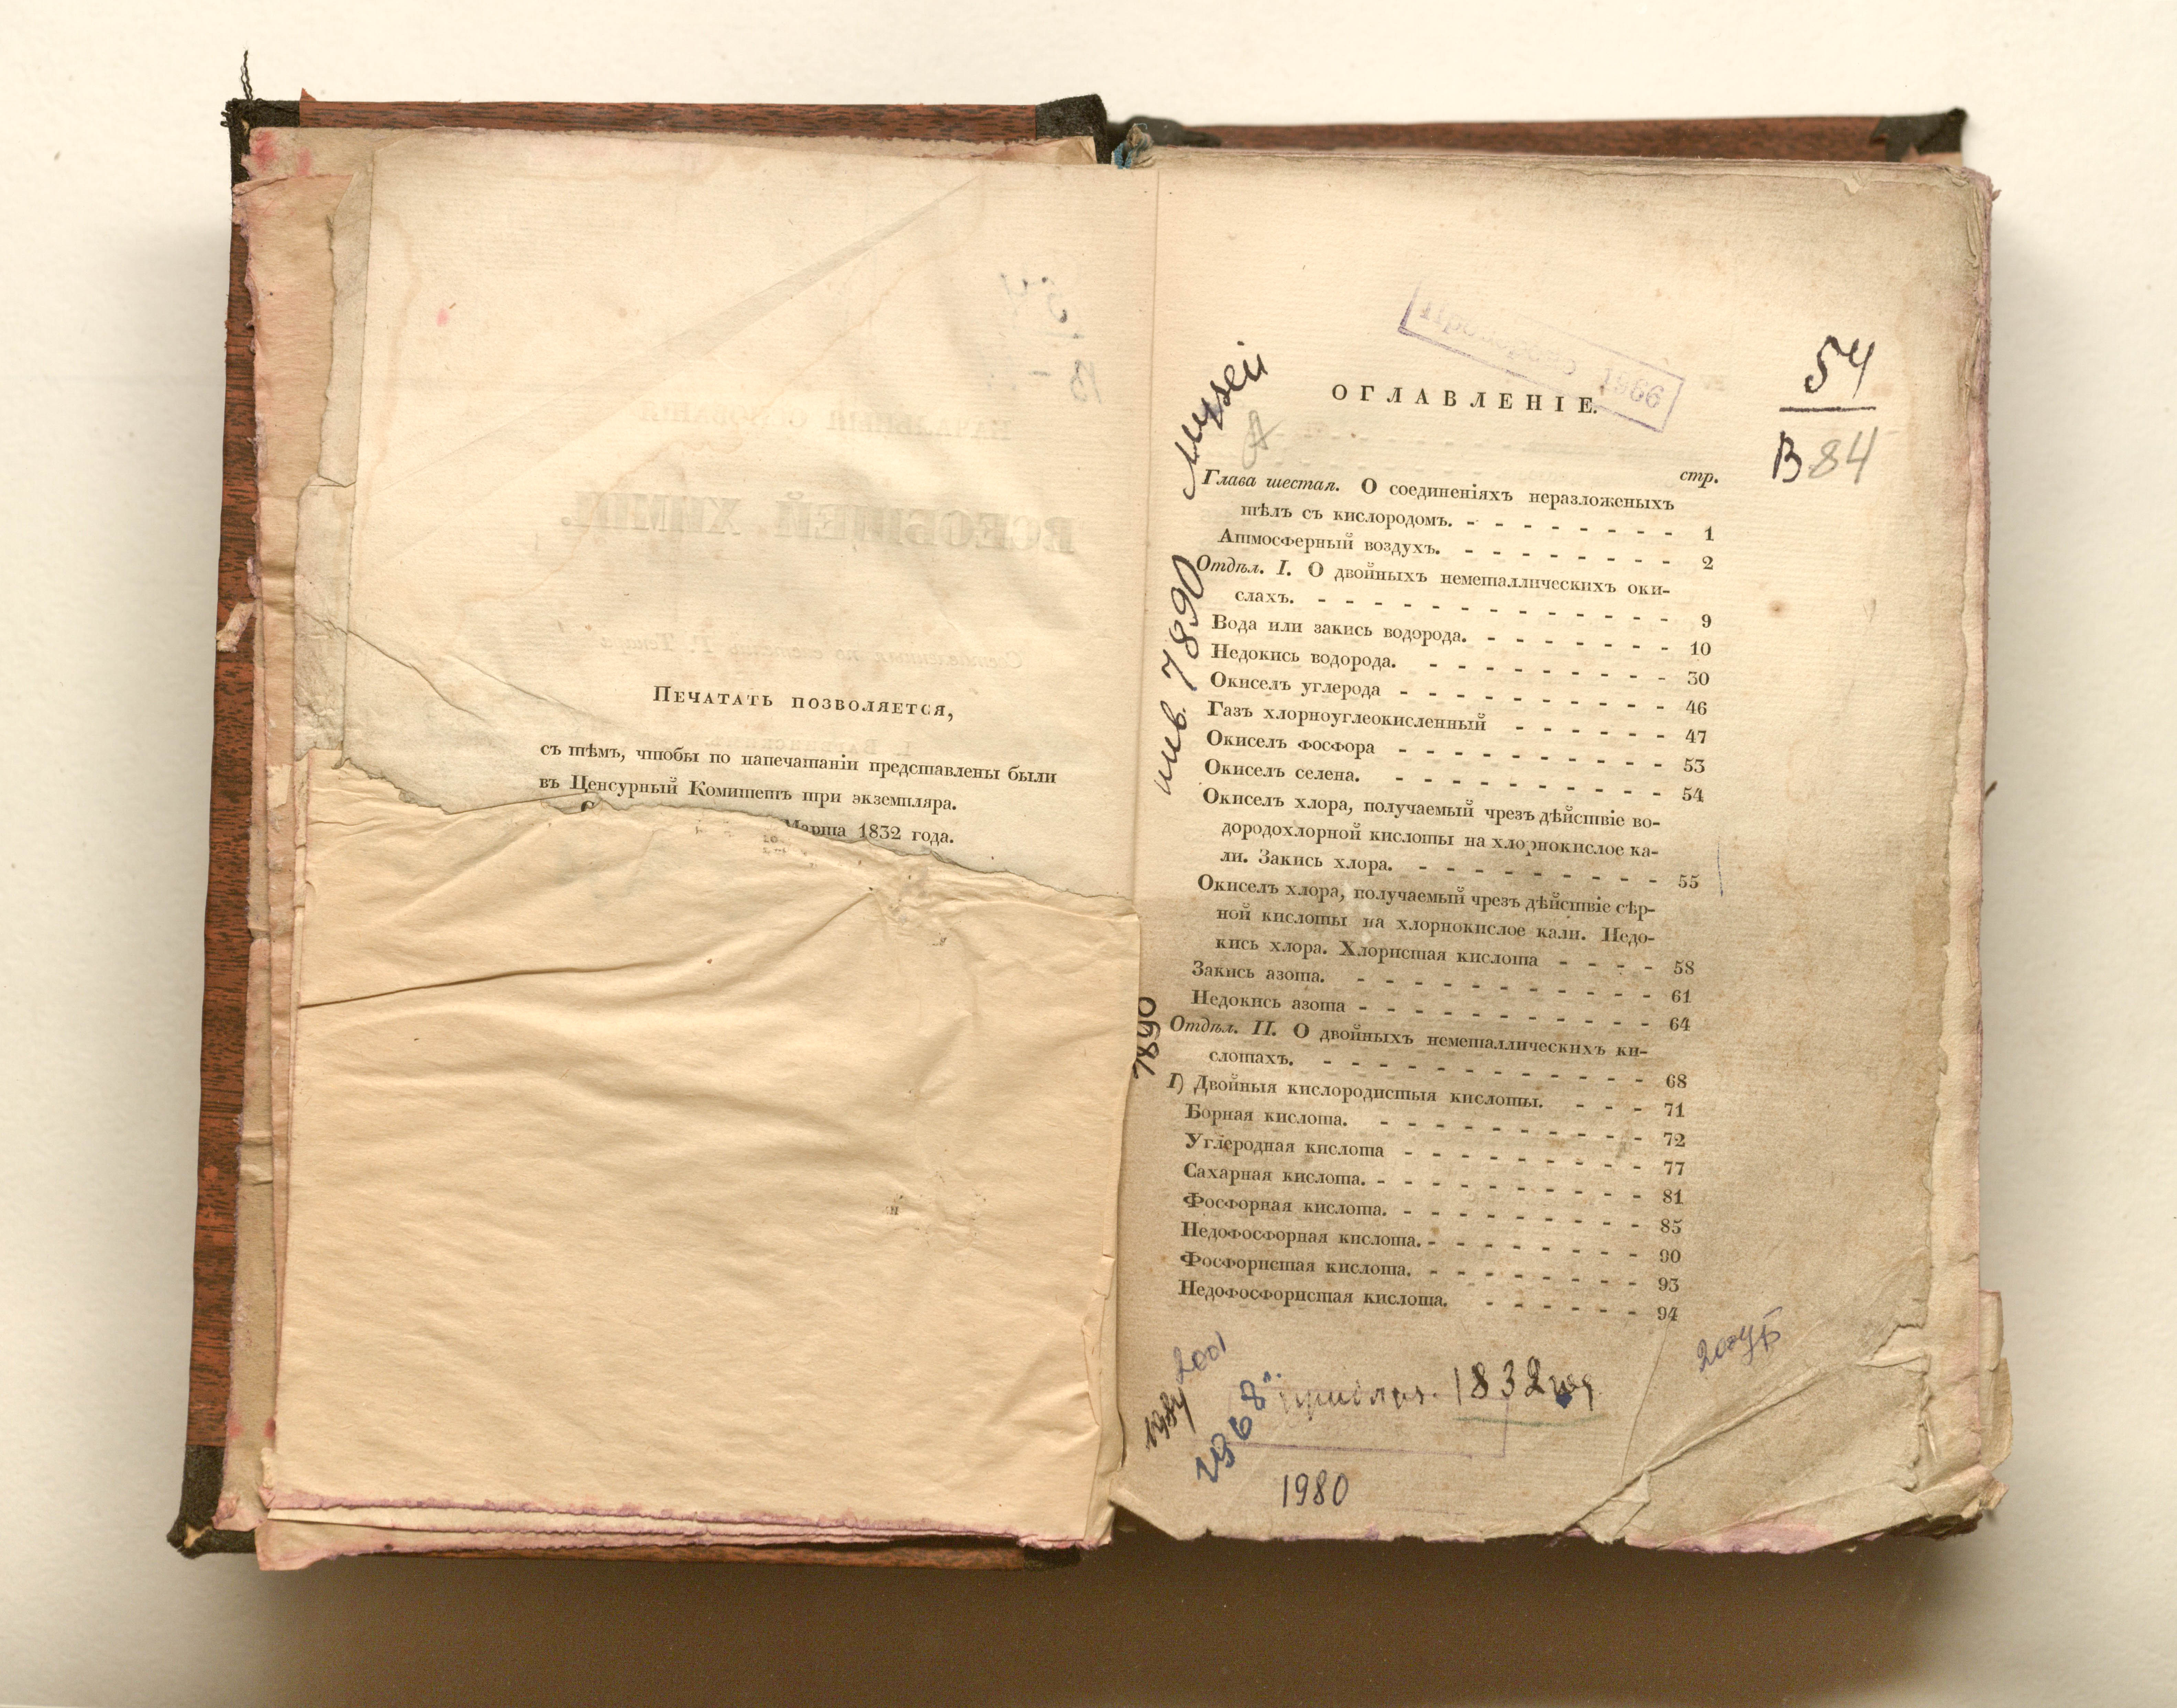 Печатать позволяется,
съ тѣмъ, чтобы по напечатаніи представлены были
въ Ценсурный Комитетъ три экземпляра.
Марта 1832 года.
Музей
инв. 7890
7890
1966
54
В 84
ОГЛАВЛЕНІЕ.
стр.
Глава шестая. О соединеніяхъ неразложеныхъ
тѣлъ съ кислородомъ. - - - - - - - - 1
Атмосферный воздухъ. - - - - - - - - 2
Отдѣл. I. О двойныхъ неметаллическихъ оки-
слахъ. - - - - - - - - - - - - - 9
Вода или закись водорода. - - - - - - - 10
Недокись водорода. - - - - - - - - - 30
Окиселъ углерода - - - - - - - - - - 46
Газъ хлорноуглеокисленный - - - - - - 47
Окиселъ фосфора - - - - - - - - - - 53
Окиселъ селена. - - - - - - - - - - 54
Окиселъ хлора, получаемый чрезъ дѣйствіе во-
дородохлорной кислоты на хлорнокислое ка-
ли. Закись хлора. - - - - - - - - - 55
Окиселъ хлора, получаемый чрезъ дѣйствіе сѣр-
ной кислоты на хлорнокислое кали. Недо-
кись хлора. Хлористая кислота - - - - 58
Закись азота. - - - - - - - - - - - 61
Недокись азота - - - - - - - - - - - 64
Отдѣл. II. О двойныхъ неметаллическихъ ки-
слотахъ. - - - - - - - - - - - - 68
I) Двойныя кислородистыя кислоты. - - - 71
Борная кислота. - - - - - - - - - - 72
Углеродная кислота - - - - - - - - - 77
Сахарная кислота. - - - - - - - - - - 81
Фосфорная кислота. - - - - - - - - - 85
Недофосфорная кислота. - - - - - - - - 90
Фосфористая кислота. - - - - - - - - 93
Недофосфористая кислота. - - - - - - 94
2001
1984
1968
1832
1980